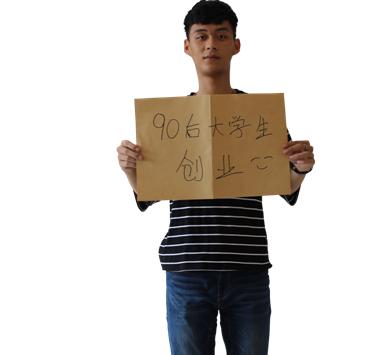 90后大学生
创业